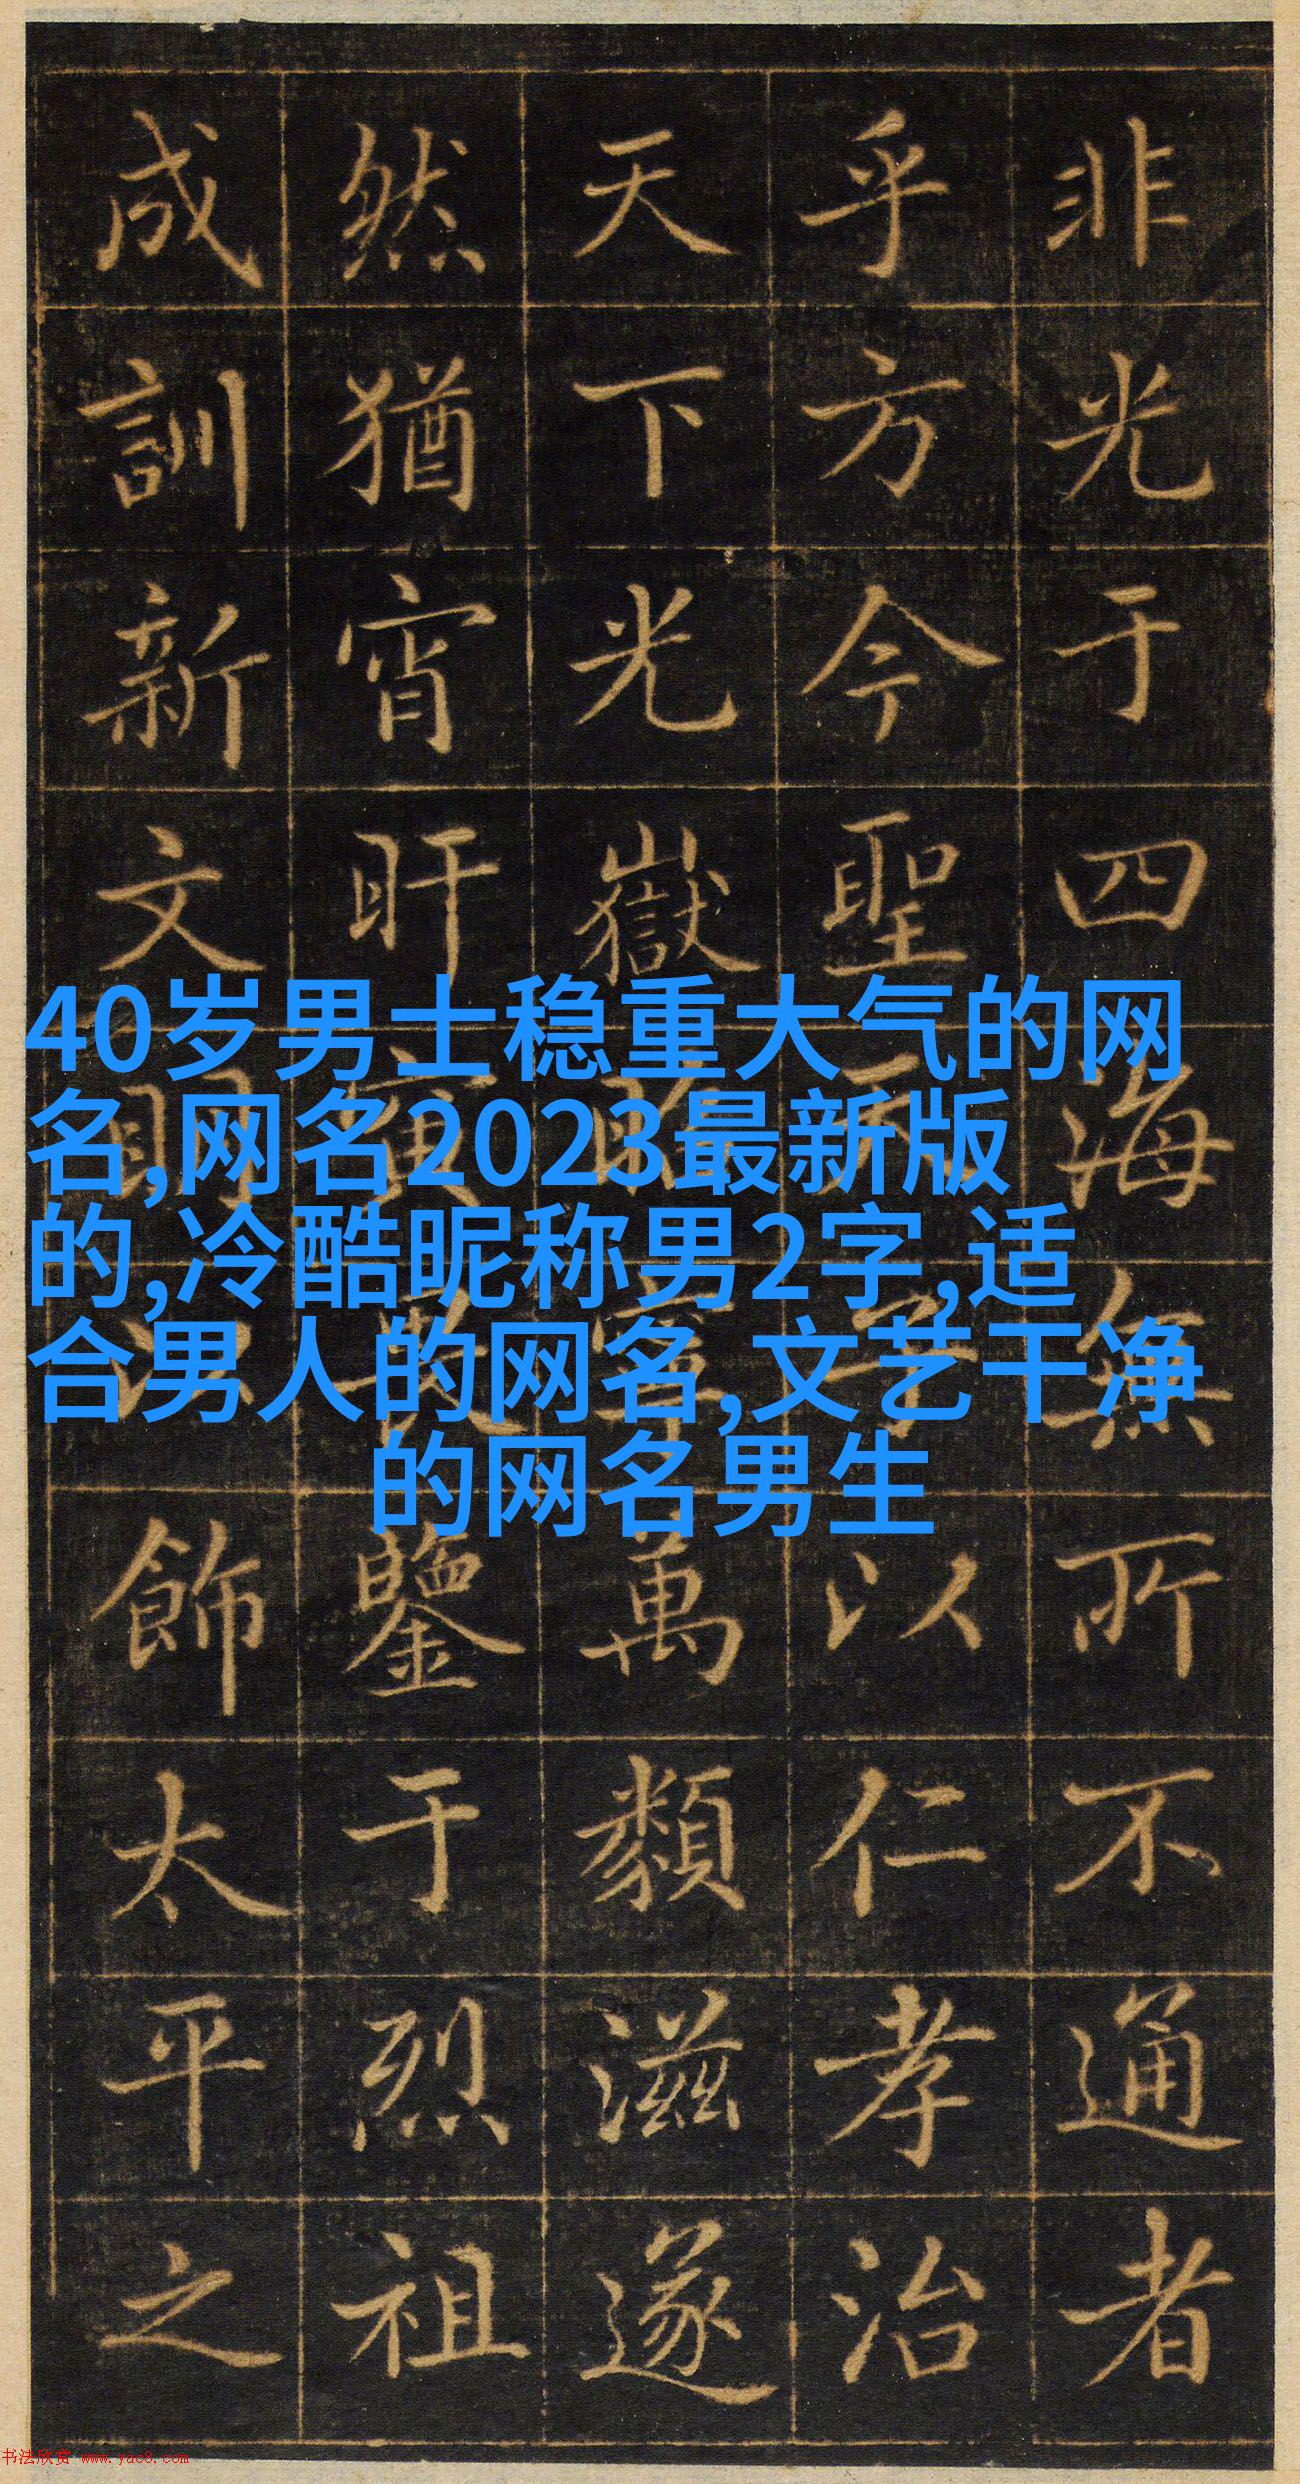 非光于四海無所不通者
乎方今聖子以仁孝治
天下光嶽寧萬類滋遂
然猶宵旰寅鑒于烈祖
成訓新文明以飾太平之
40岁男士稳重大气的网
名,网名2023最新版
的,冷酷昵称男2字,适
合男人的网名,文艺干净
的网名男生
书法欣赏 www.yac8.com